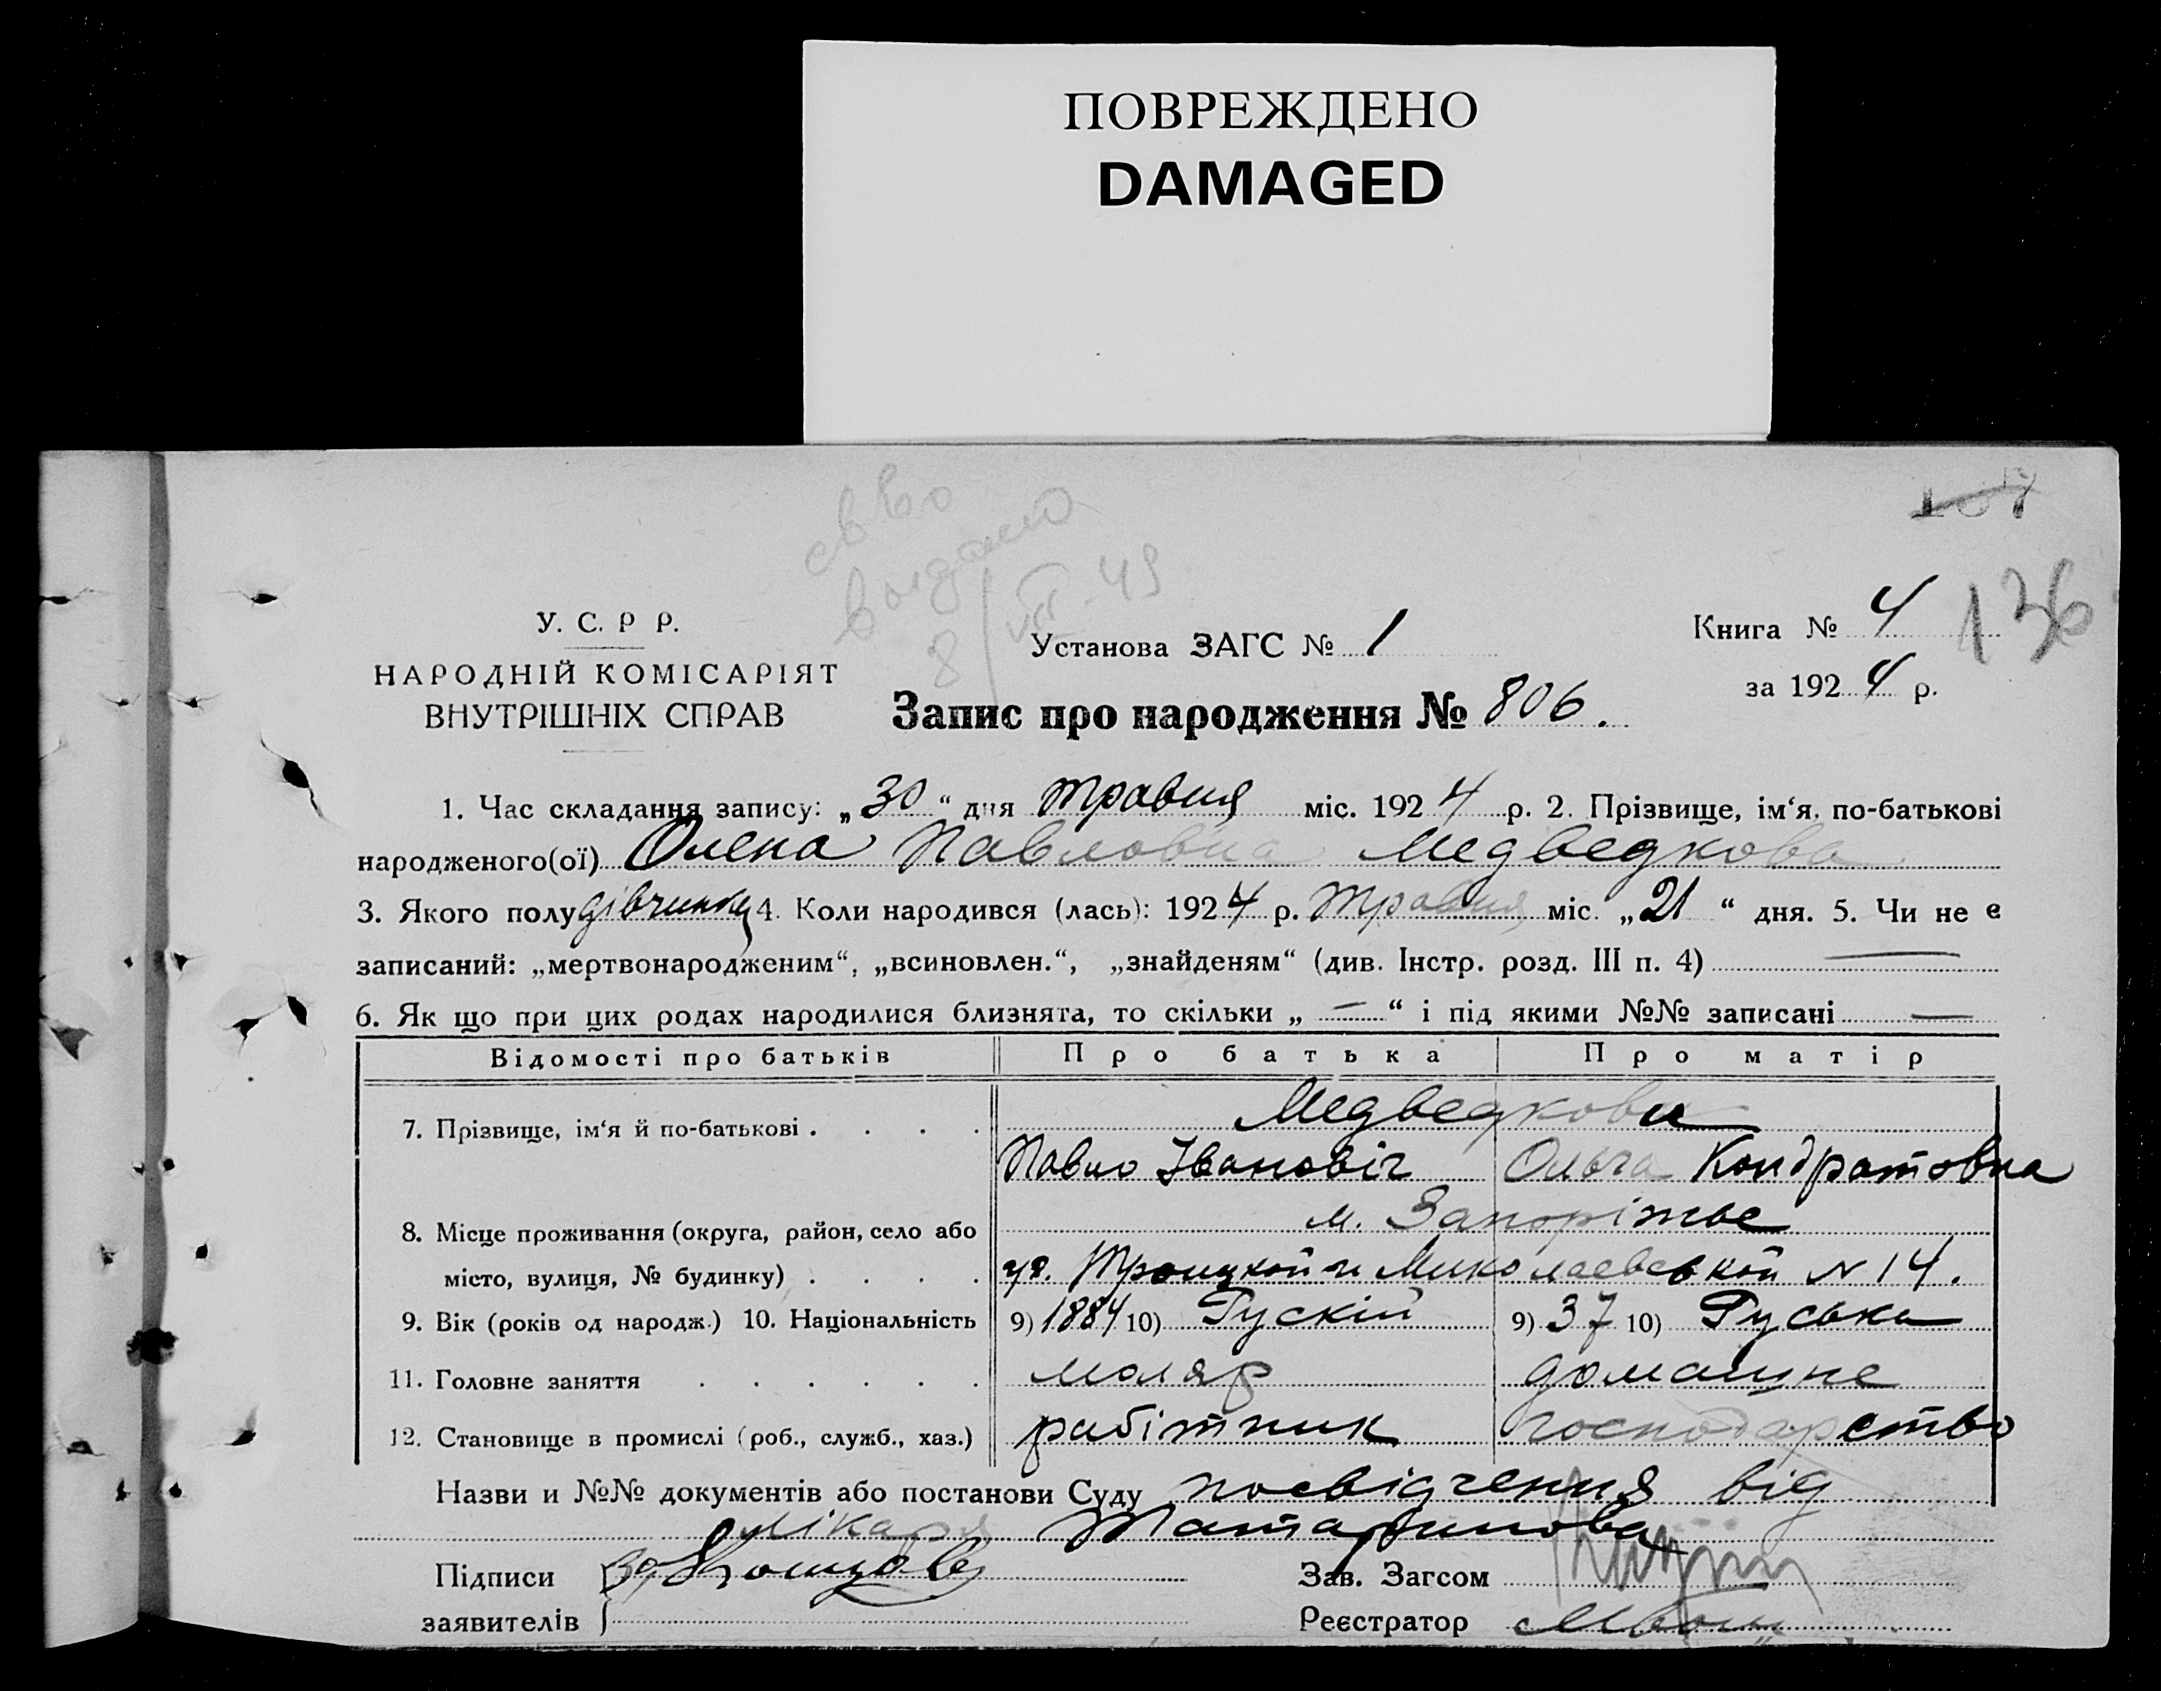 ПОВРЕЖДЕНО
DAMAGED
св во
выдано
8/VII-49
136
У. С. Р Р.
НАРОДНІЙ КОМІСАРІЯТ
ВНУТРІШНІХ СПРАВ
Установа ЗАГС № 1
Книга № 4
за 1924 р.
Запис про народження № 806.
1. Час складання запису: „30“ дня травня міс. 1924 р. 2. Прізвище, ім‘я, по-батькові
народженого(ої) Олена Павловна Медведкова
3. Якого полу дівчинку 4. Коли народився (лась): 1924 р. травня міс. „21“ дня. 5. Чи не є
записаний: „мертвонародженим“, „всиновлен.“, „знайденям“ (див. Інстр. розд. III п. 4) —
6. Як що при цих родах народилися близнята, то скільки „—“ і під якими №№ записані —
Відомості про батьків Про батька Про матір
7. Прізвище, ім‘я й по-батькові . . . . Медведкови
Павло Івановіч Ольга Кондратовна
8. Місце проживання (округа, район, село або м. Запоріжье
місто, вулиця, № будинку) . . . . Троицкой и Миколаевскои № 14.
9. Вік (років од народж.) 10. Національність 9) 1884 10) Рускій 9) 37 10) Руська
11. Головне заняття . . . . . . маляр домашнє
12. Становище в промислі (роб., служб., хаз.) рабітник господарство
Назви и №№ документів або постанови Суду посвідчення від
лікаря Татаринова
Підписи
заявителів
Зав. Загсом
Реєстратор